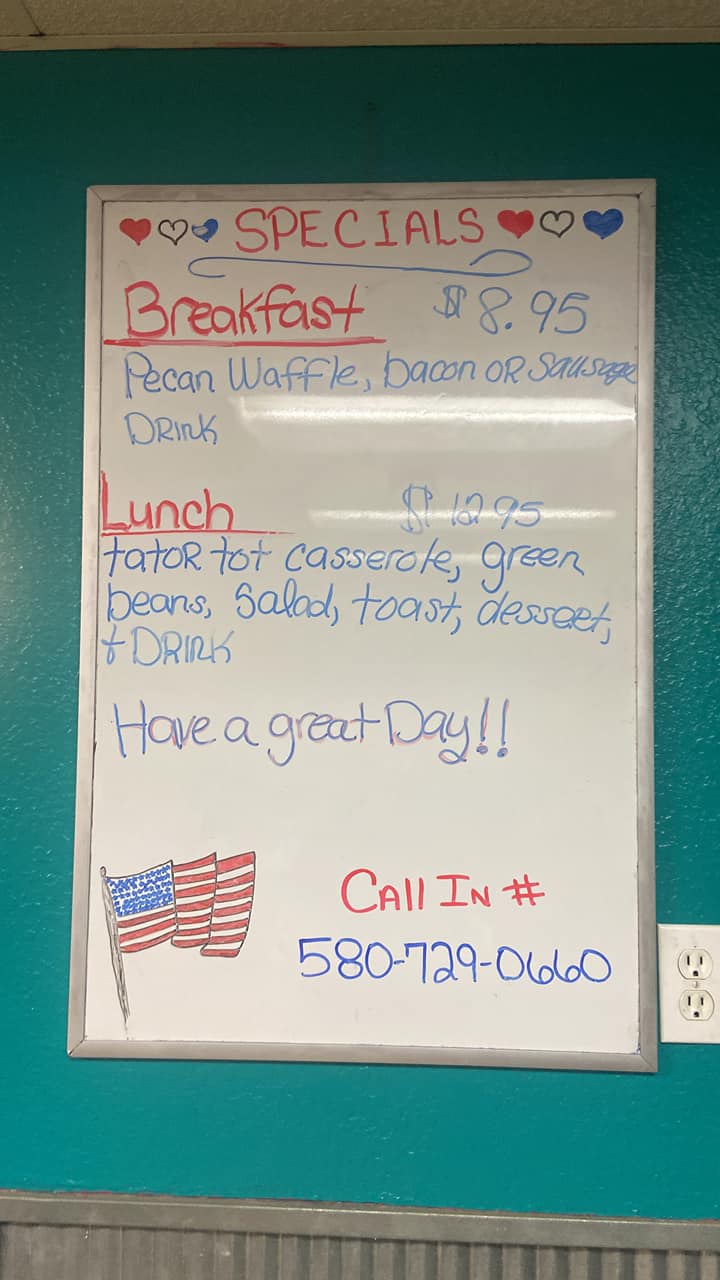 SPECIALS
Breakfast $8.95
Pecan Waffle, bacon OR Sausage
DRINK
Lunch $12.95
tatoR tot casserole, green
beans, Salad, toast, dessert,
+ DRINK
Have a great Day!!
CAll IN #
580-729-0660